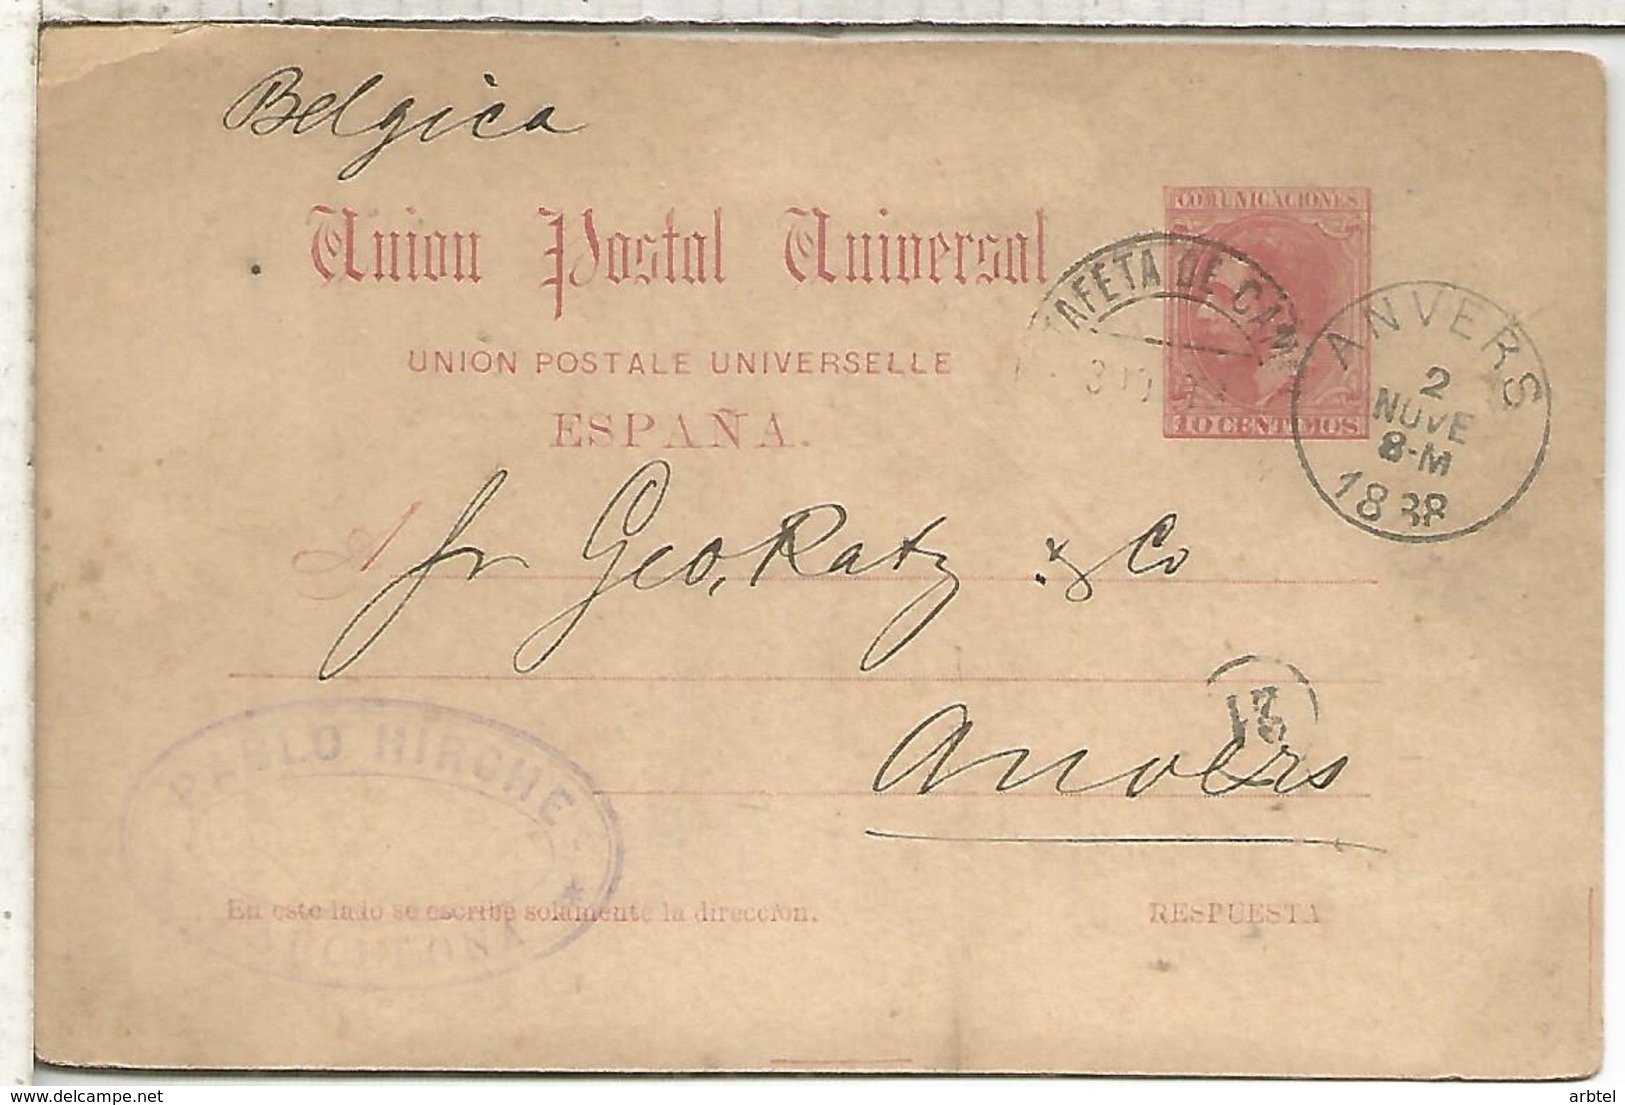 Belgica
Union Postal Universal
COMUNICACIONES
TAFETA DE CAM
UNION POSTALE UNIVERSELLE
ESPAÑA.
10 CENTIMOS
ANVERS
2
NOVE
8-M
1888
A
Geo. Ratz & Co
21
Anvers
PABLO HIRCHE
BARCELONA
En este lado se escribe solamente la dirección.
RESPUESTA
arbtel